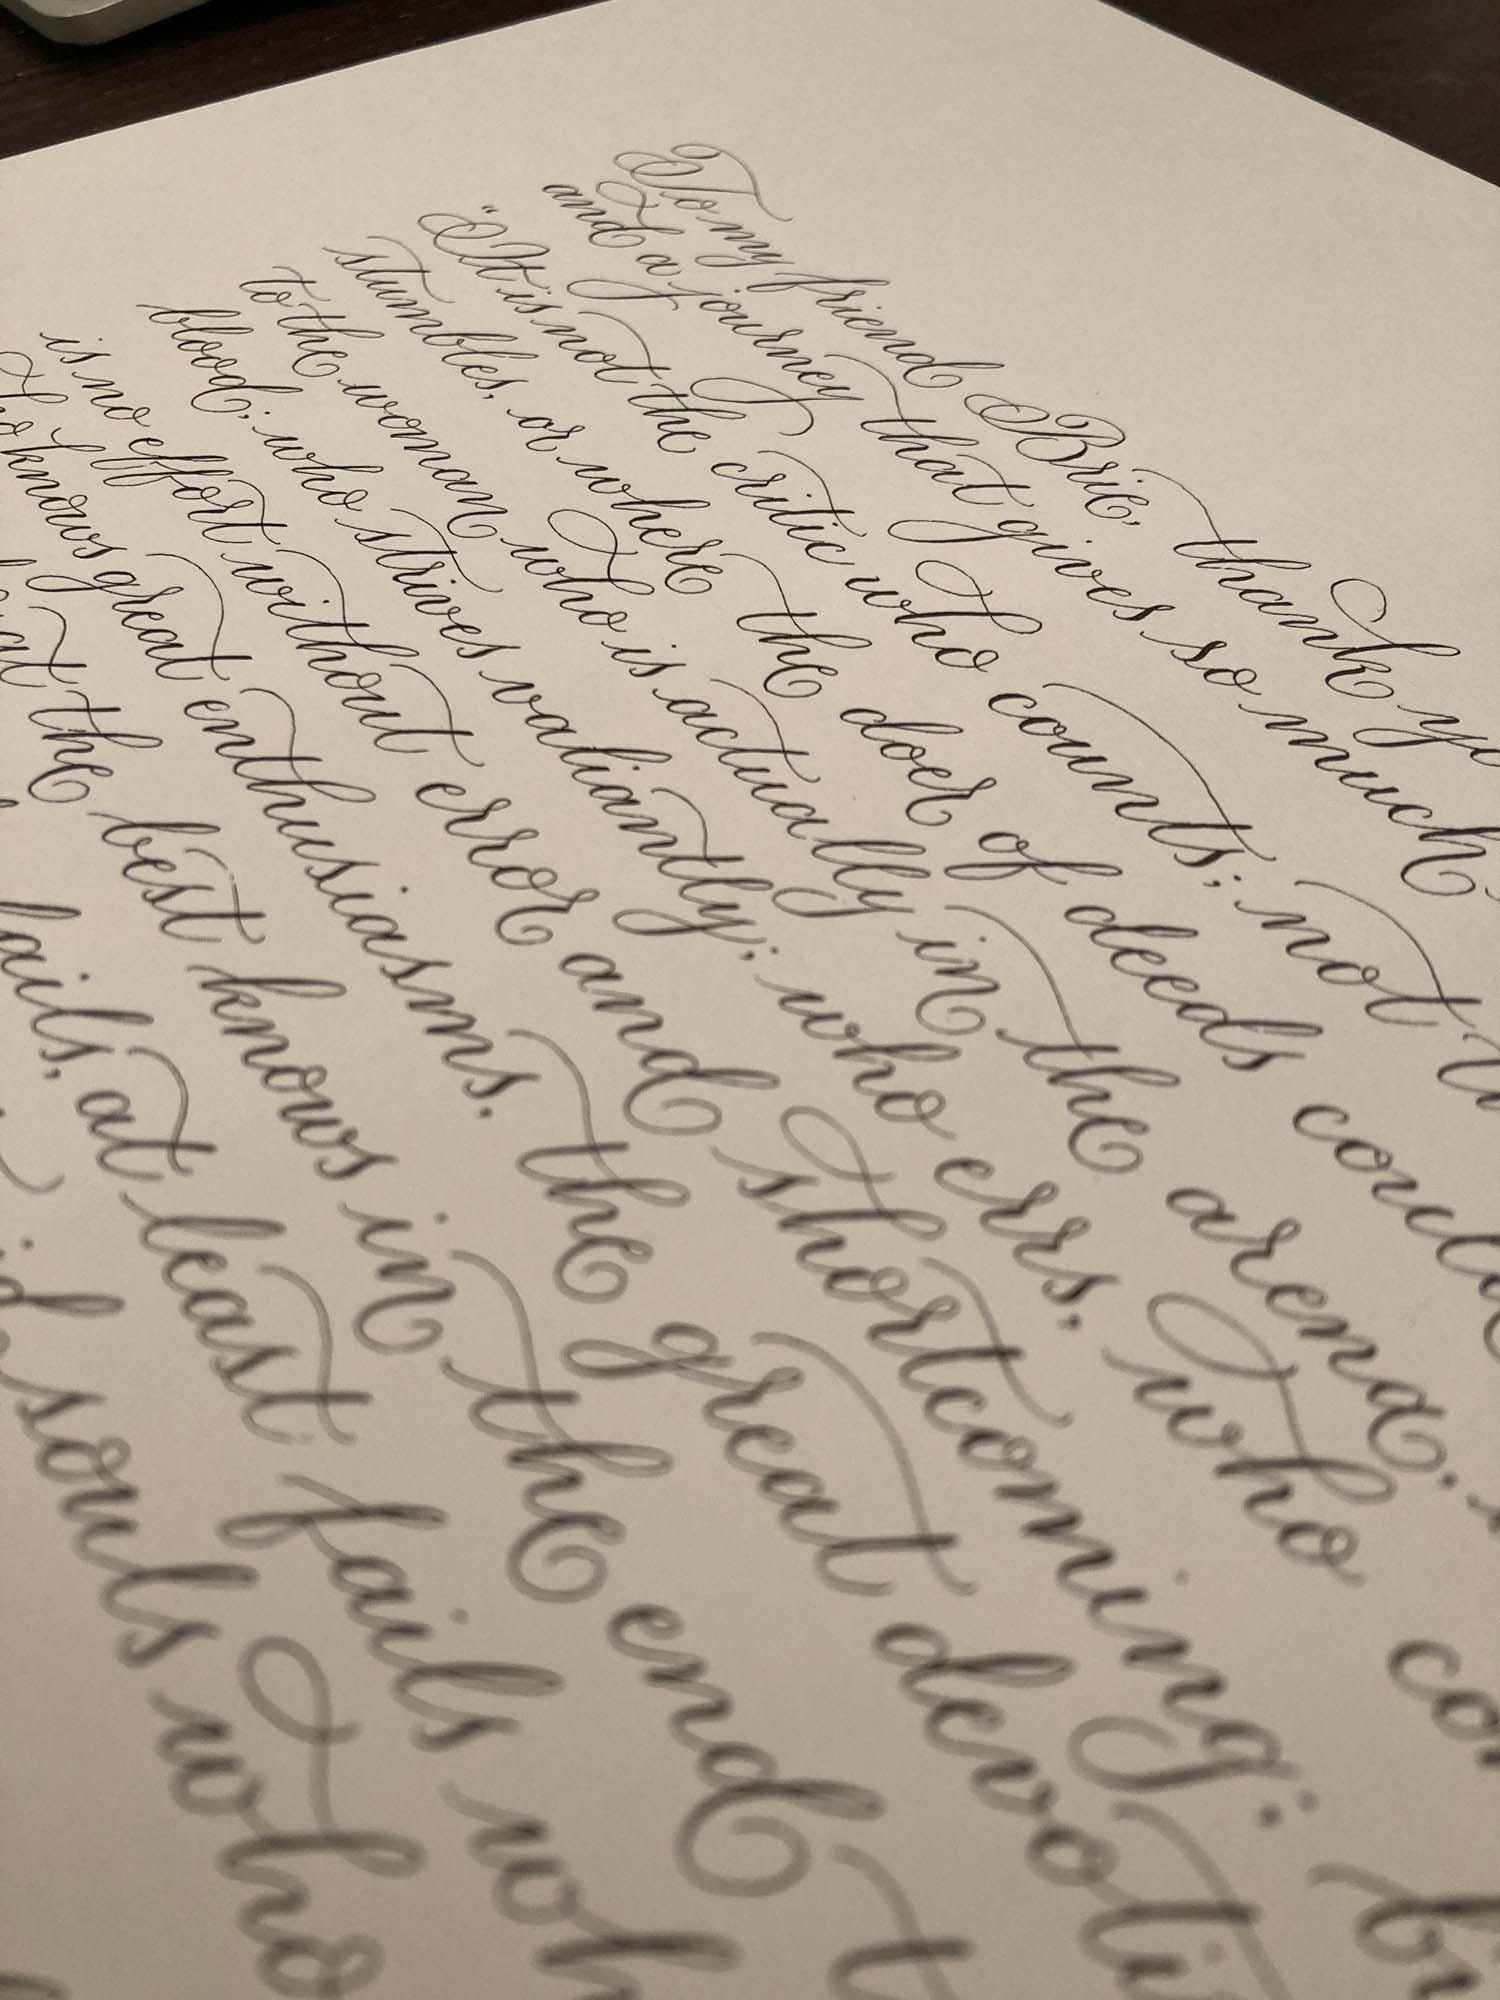 To my friend Brie, thank yo
and a journey that gives so much
“It is not the critic who counts; not t
stumbles, or where the doer of deeds could
to the woman who is actually in the arena;
blood; who strives valiantly; who errs, who co
is no effort without error and shortcoming; bu
knows great enthusiasms, the great devoti
at the best knows in the end t
fails, at least fails wh
souls who